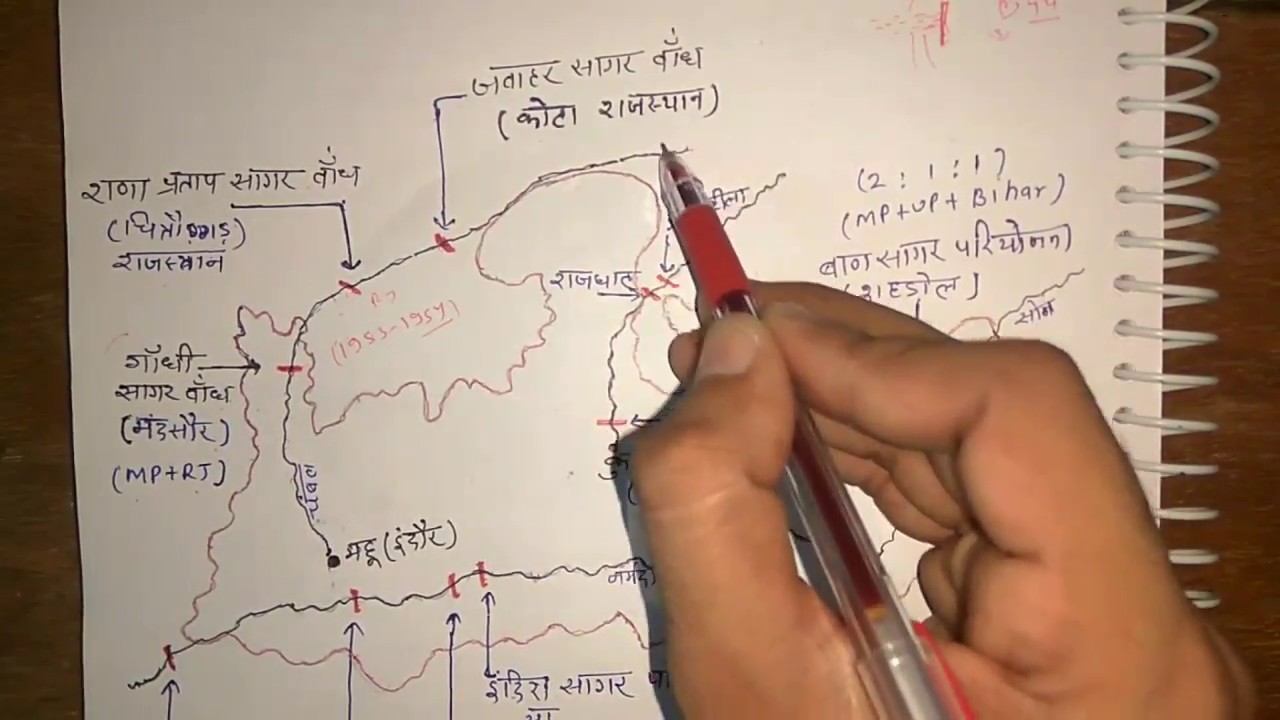 जवाहर सागर बाँध
(कोटा राजस्थान)
राणा प्रताप सागर बाँध
(चित्तौड़गढ़)
राजस्थान
(2 : 1 : 1)
(MP+UP+Bihar)
बाण सागर परियोजना
(शहडोल)
सोन
राजघाट
(1953-1954)
गाँधी
सागर बाँध
(मंदसौर)
(MP+RJ)
चंबल
महू (इंदौर)
नर्मदा
इंदिरा सागर
या